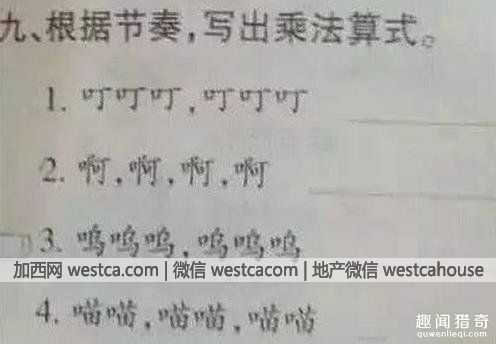 九、根据节奏，写出乘法算式。
1. 叮叮叮，叮叮叮
2. 啊，啊，啊，啊
3. 呜呜呜，呜呜呜
加西网 westca.com | 微信 westcacom | 地产微信 westcahouse
4. 喵喵，喵喵，喵喵
趣闻猎奇
quwenlieqi.com